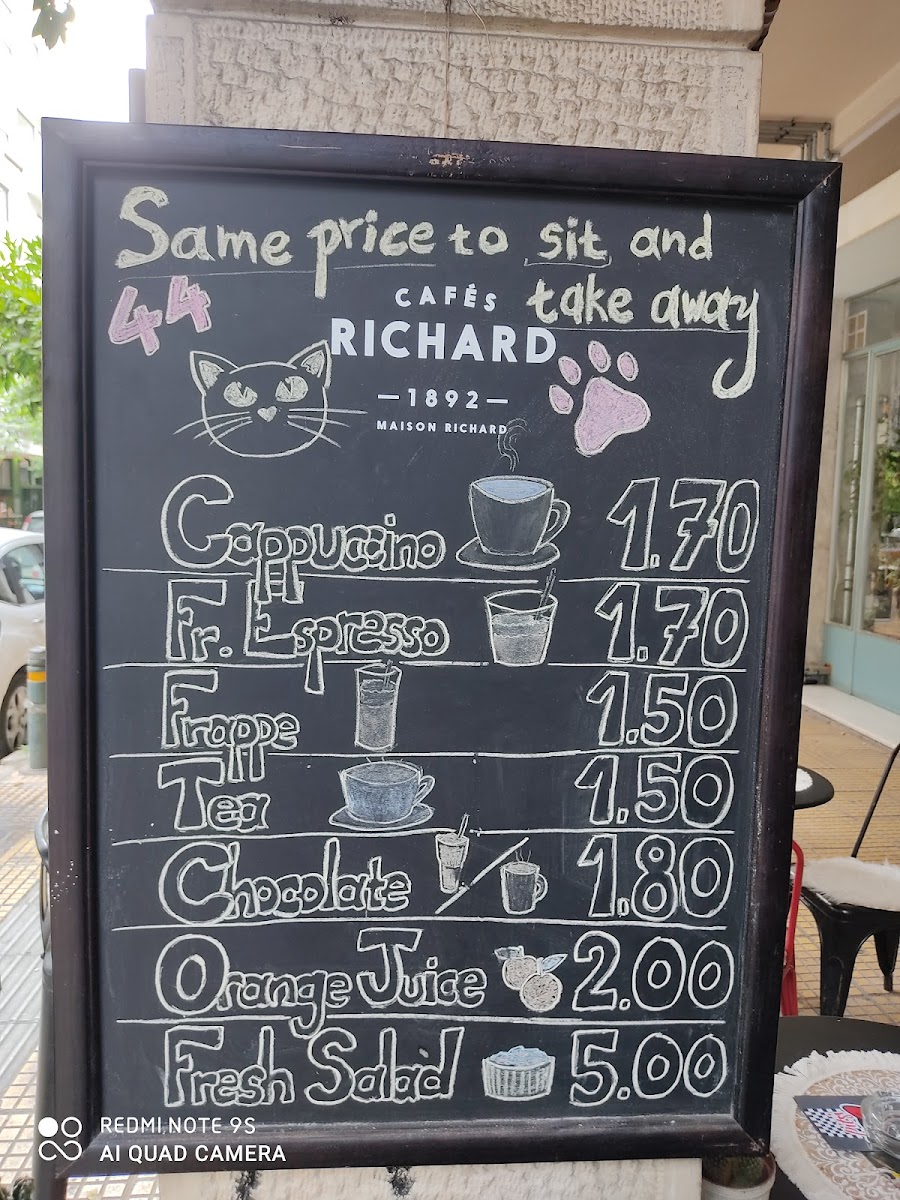 Same price to sit and
take away
44
CAFÉS
RICHARD
—1892—
MAISON RICHARD
Cappuccino 1.70
Fr. Espresso 1.70
Frappe 1.50
Tea 1.50
Chocolate / 1.80
Orange Juice 2.00
Fresh Salad 5.00
REDMI NOTE 9S
AI QUAD CAMERA